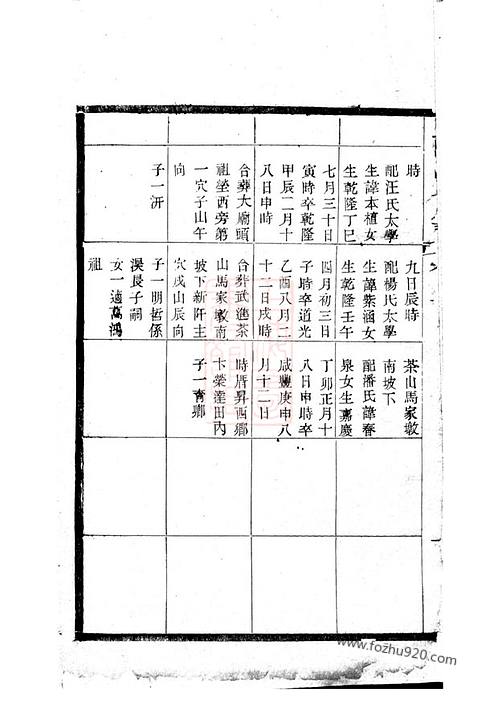 時
配汪氏太學
生諱本植女
生乾隆丁巳
七月三十日
寅時卒乾隆
甲辰二月十
八日申時
合葬大廟頭
祖塋西旁第
一穴子山午
向
子一沂
九日辰時
配楊氏太學
生諱紫涵女
生乾隆壬午
四月初三日
子時卒道光
乙酉八月二
十二日戌時
合葬武進茶
山馬家墩南
坡下新阡主
穴戌山辰向
子一明哲係
淏長子祠
女一適萬鴻
祖
茶山馬家墩
南坡下
配潘氏諱春
泉女生嘉慶
丁卯正月十
八日申時卒
咸豐庚申八
月十二日
時厝昇西鄉
卞榮達田內
子一育鄉
www.fozhu920.com